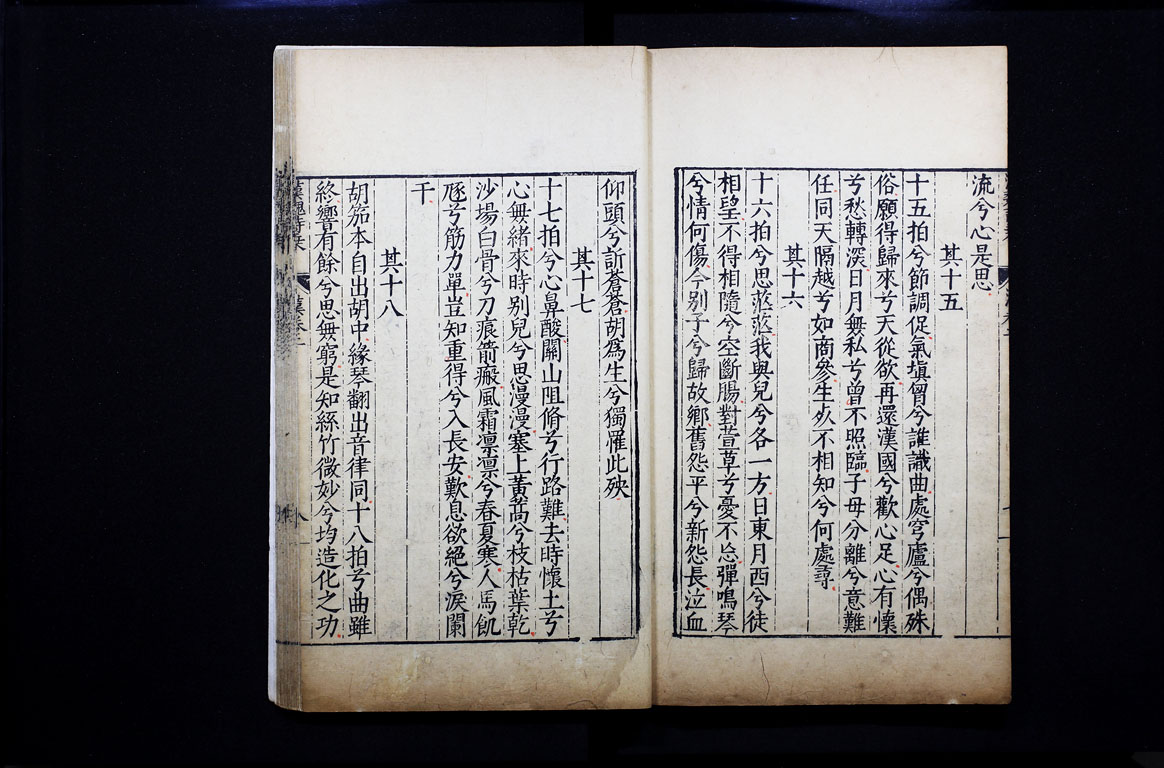 流兮心是思
其十五
十五拍兮節調促氣塡胷兮誰識曲處穹廬兮偶殊
俗願得歸來兮天從欲再還漢國兮歡心足心有懷
兮愁轉深日月無私兮曾不照臨子母分離兮意難
任同天隔越兮如商參生死不相知兮何處尋
其十六
十六拍兮思茫茫我與兒兮各一方日東月西兮徒
相望不得相隨兮空斷腸對萱草兮憂不忘彈鳴琴
兮情何傷今別子兮歸故鄉舊怨平兮新怨長泣血
仰頭兮訴蒼蒼胡爲生兮獨罹此殃
其十七
十七拍兮心鼻酸關山阻脩兮行路難去時懷土兮
心無緒來時別兒兮思漫漫塞上黃蒿兮枝枯葉乾
沙場白骨兮刀痕箭瘢風霜凛凛兮春夏寒人馬飢
豗兮筋力單豈知重得兮入長安歎息欲絕兮淚闌
干
其十八
胡笳本自出胡中緣琴翻出音律同十八拍兮曲雖
終響有餘兮思無窮是知絲竹微妙兮均造化之功